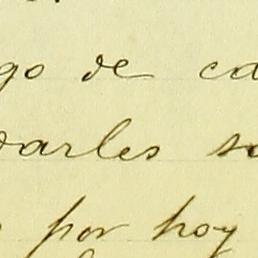 go de ca
darles so
por hoy